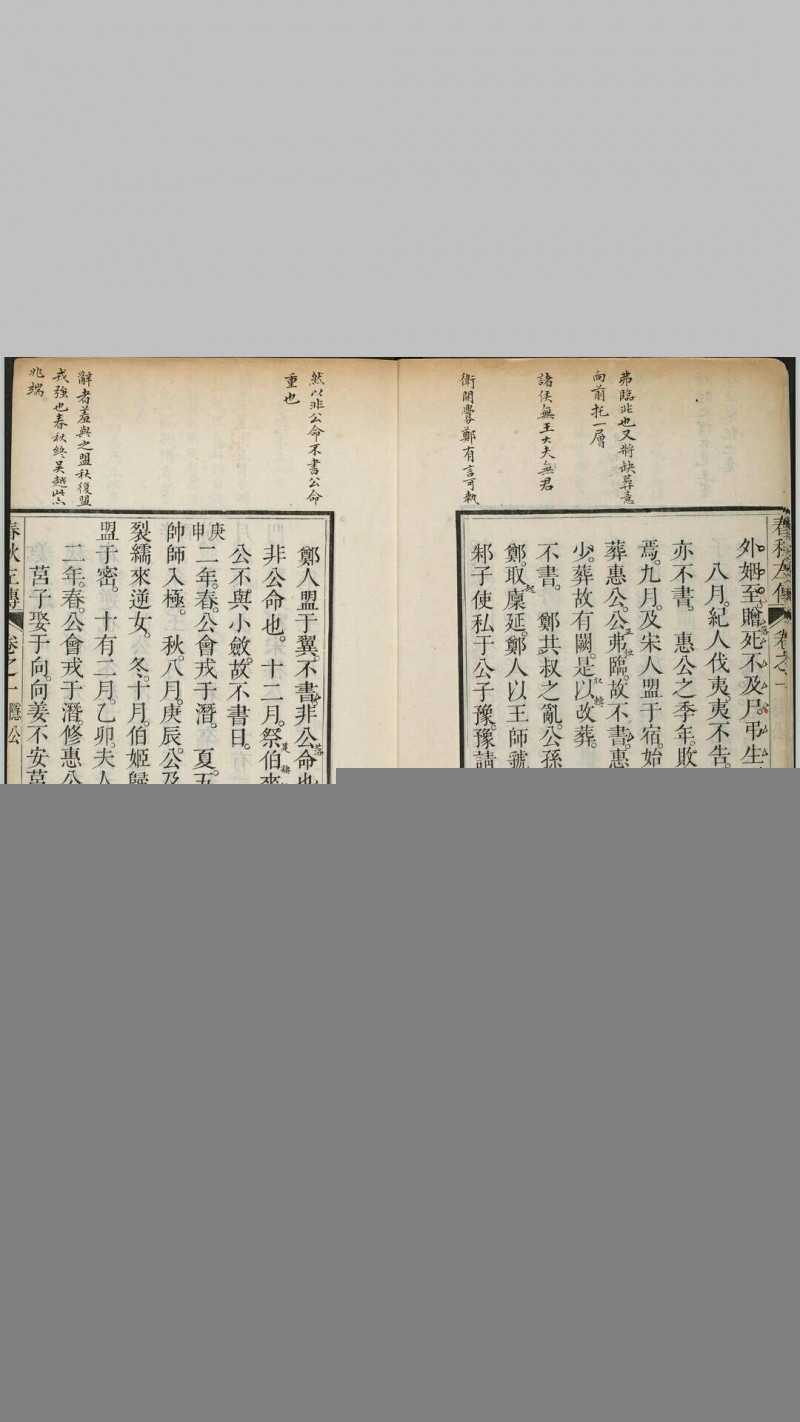 春秋左傳 卷之一
弗臨非也又將缺葬意
向前托一層
諸侯無王大夫無君
衛開釁鄭有言可執
外姻至贈死不及尸弔生
八月。紀人伐夷。夷不告。
亦不書。 惠公之季年。敗
焉。九月。及宋人盟于宿。始
葬惠公。公弗臨。故不書。惠
少。葬故有闕。是以改葬。
不書。 鄭共叔之亂。公孫
鄭。取廩延。鄭人以王師虢
邾子使私于公子豫。豫請
然以非公命不書公命
重也
辭者羞與之盟秋復盟
戎強也春秋終吳越此亦
兆端。
鄭人盟于翼。不書。非公命也
非公命也。 十二月。祭伯來
公不與小斂。故不書日。
庚申
二年。春。公會戎于潛。 夏。五
帥師入極。 秋。八月。庚辰。公及
裂繻來逆女。 冬。十月。伯姬歸
盟于密。 十有二月。乙卯。夫人
二年。春。公會戎于潛。修惠公
莒子娶于向。向姜不安莒
春秋左傳 卷之一 隱公